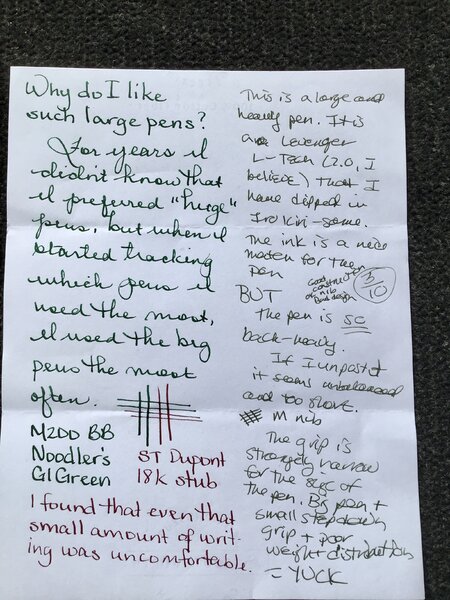 Why do I like
such large pens?
For years I
didn't know that
I preferred "huge"
pens, but when I
started tracking
which pens I
used the most,
I used the big
pens the most
often.
M200 BB
Noodler's
GI Green
ST Dupont
18k stub
I found that even that
small amount of writ-
ing was uncomfortable.
This is a large and
heavy pen. It is
a Levenger
L-Tech (2.0, I
believe) that I
have dipped in
Iroshizuku
The ink is a nice
match for the
pen
Good
construction
of nib
Bad design
3/10
BUT
the pen is so
back-heavy.
If I unpost
it seems unbalanced
and too short.
M nib
The grip is
strangely narrow
for the size of
the pen. Big pen +
small step down
grip + poor
weight distribution
= YUCK